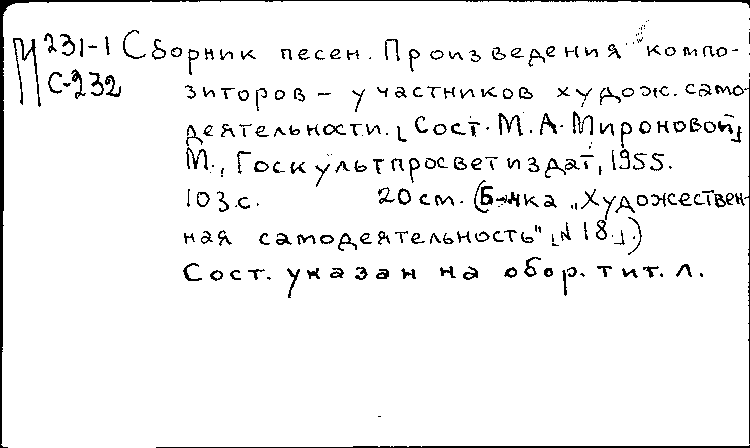 М 231-1 Сборник песен. Произведения компо-
С-232 зиторов – участников худож. само-
деятельности. [Сост. М. А. Мироновой]
М., Госкультпросветиздат, 1955.
103 с. 20 см. (Б-чка „Художествен-
ная самодеятельность" [№ 18.])
Сост. указан на обор. тит. л.